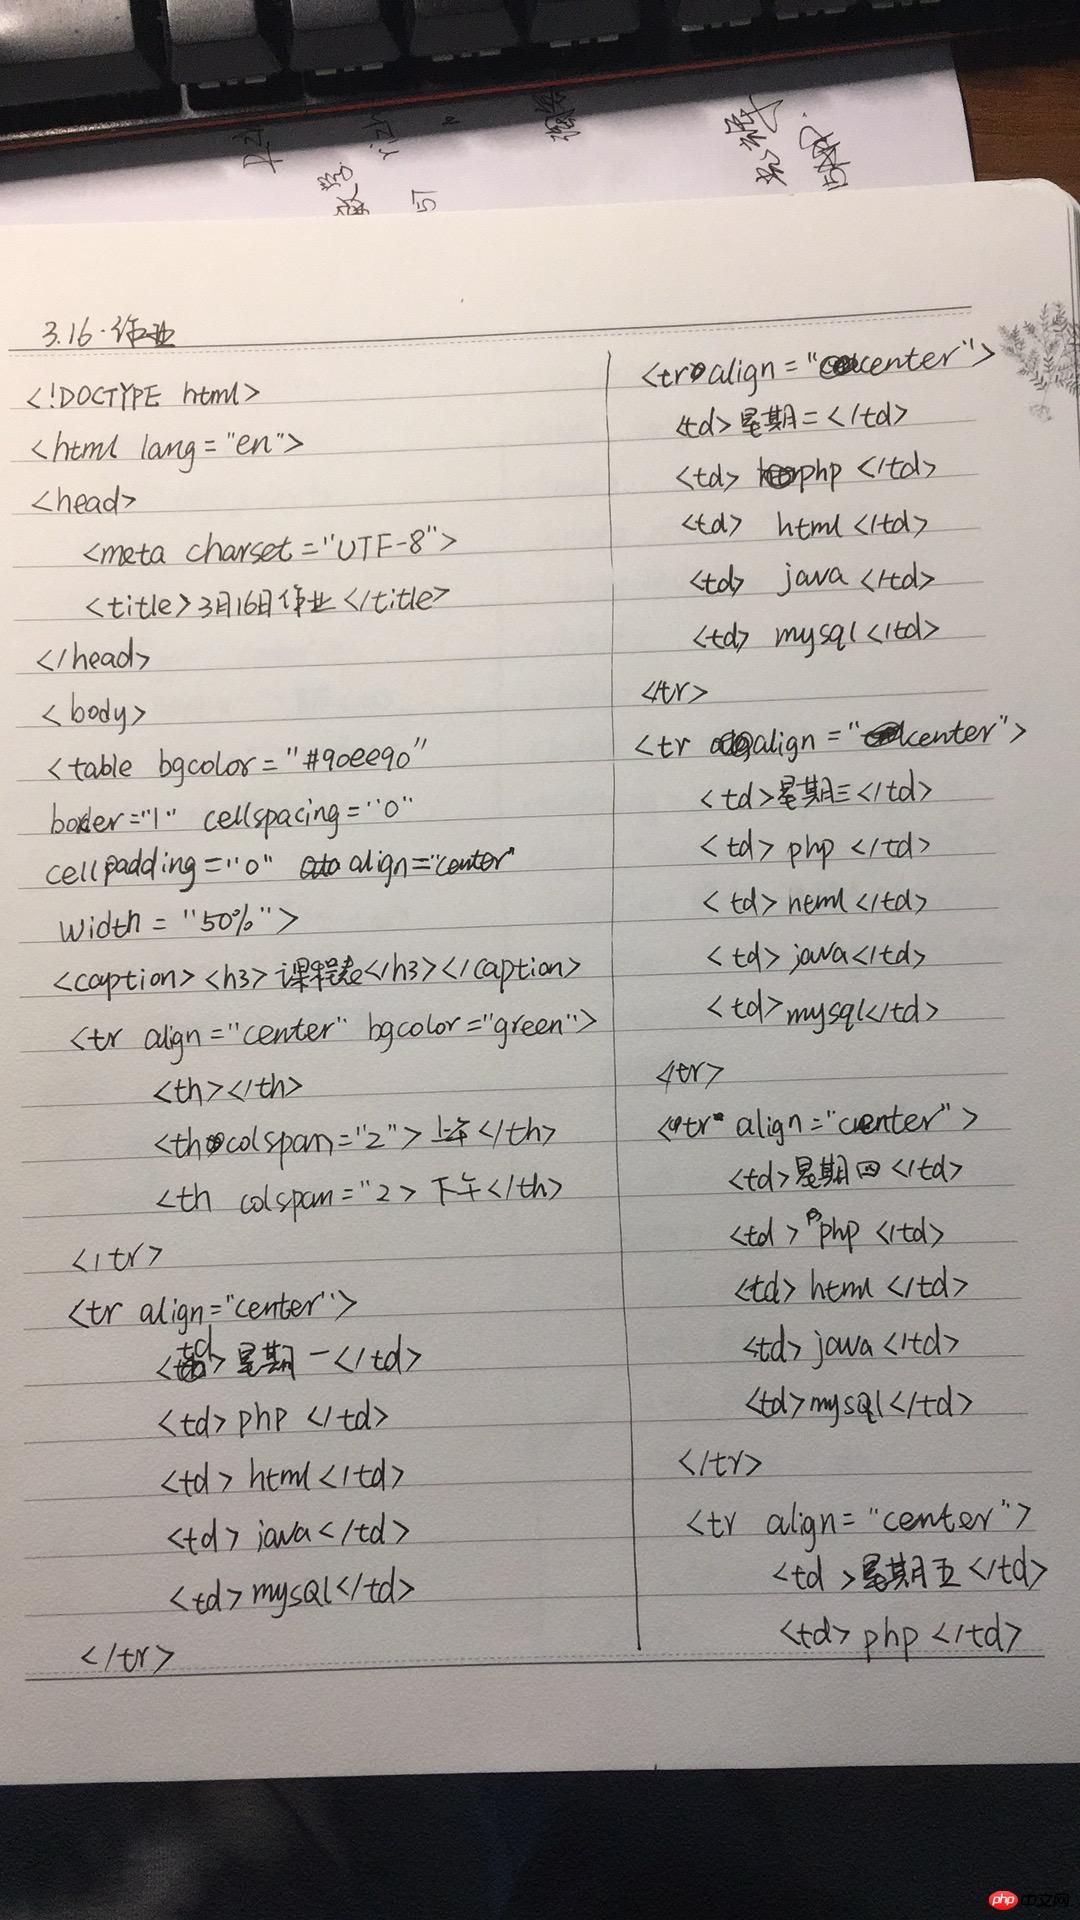 3.16.作业
<!DOCTYPE html>
<html lang="en">
<head>
<meta charset="UTF-8">
<title>3月16日作业</title>
</head>
<body>
<table bgcolor="#90ee90"
border="1" cellspacing="0"
cellpadding="0" align="center"
width="50%">
<caption><h3>课程表</h3></caption>
<tr align="center" bgcolor="green">
<th></th>
<th colspan="2">上午</th>
<th colspan="2>下午</th>
</tr>
<tr align="center">
<td>星期一</td>
<td>php</td>
<td>html</td>
<td>java</td>
<td>mysql</td>
</tr>
<tr align="center">
<td>星期二</td>
<td>php</td>
<td>html</td>
<td>java</td>
<td>mysql</td>
</tr>
<tr align="center">
<td>星期三</td>
<td>php</td>
<td>html</td>
<td>java</td>
<td>mysql</td>
</tr>
<tr align="center">
<td>星期四</td>
<td>php</td>
<td>html</td>
<td>java</td>
<td>mysql</td>
</tr>
<tr align="center">
<td>星期五</td>
<td>php</td>
php中文网